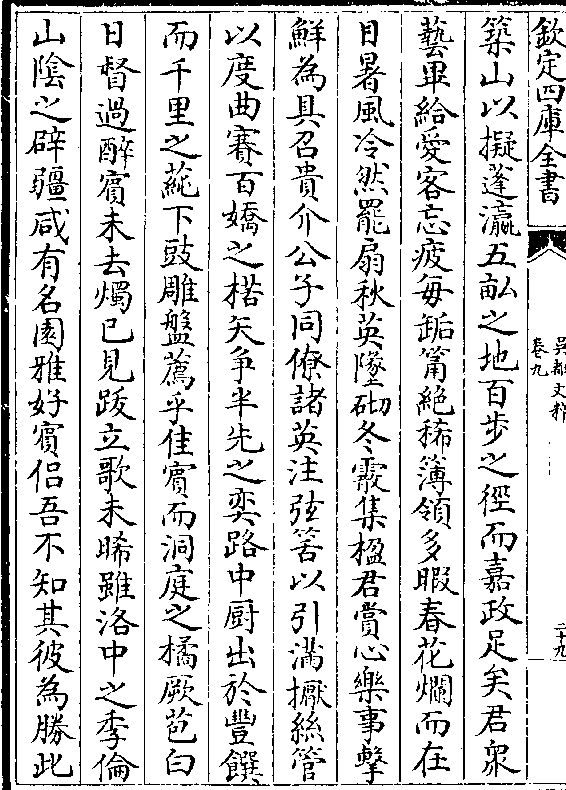 欽定四庫全書
吳都文粹
卷九
二十九
築山以擬蓬瀛五畝之地百步之徑而嘉政足矣君衆
藝畢給愛客忘疲每缿筩絕稀簿領多暇春花爛而在
目暑風冷然罷扇秋英墜砌冬霰集楹君賞心樂事擊
鮮為具召貴介公子同僚諸英注弦筈以引滿擫絲管
以度曲賽百嬌之楛矢爭半先之奕路中厨出於豐饌
而千里之蒓下豉雕盤薦乎佳賓而洞庭之橘厥苞白
日督過醉賓未去燭已見跋立歌未晞雖洛中之季倫
山陰之辟疆咸有名園雅好賓侶吾不知其彼為勝此